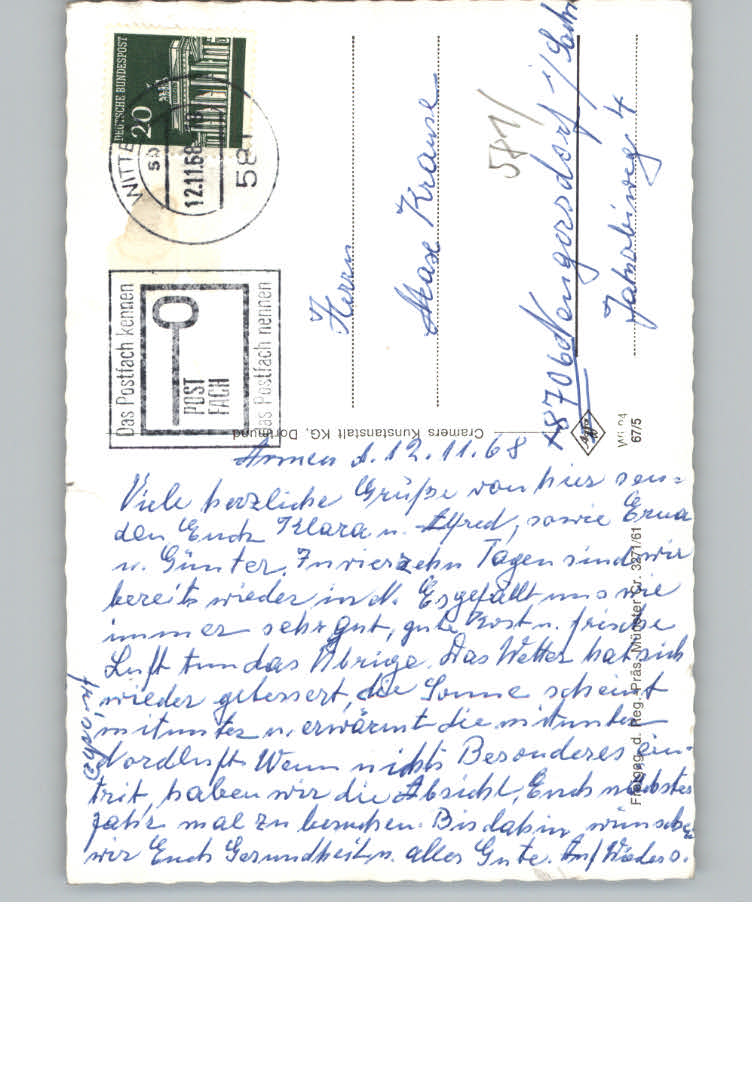 DEUTSCHE BUNDESPOST
20
12.11.68
581
Das Postfach kennen
POST
FACH
das Postfach nennen
Herrn
Max Krause
581/
8706 Neugersdorf i/Sachs
Jakobiweg 4
Cramers Kunstanstalt KG, Dortmund
67/5
Freigeg. d. Reg. Präs. Münster Nr. 3271/61
d. 12.11.68
Viele herzliche Grüße von hier sen=
den Euch Klara u. Alfred, sowie Erna
u. Günter. In vierzehn Tagen sind wir
bereits wieder in N. Es gefällt uns wie
immer sehr gut, gute Kost u. frische
Luft tun das Übrige. Das Wetter hat sich
wieder gebessert, die Sonne scheint
mitunter u. erwärmt die mitunter
Nordluft. Wenn nichts Besonderes ein-
trit, haben wir die Absicht, Euch nächstes
Jahr mal zu besuchen. Bis dahin wünschen
wir Euch Gesundheit u. alles Gute. Auf Wieders.